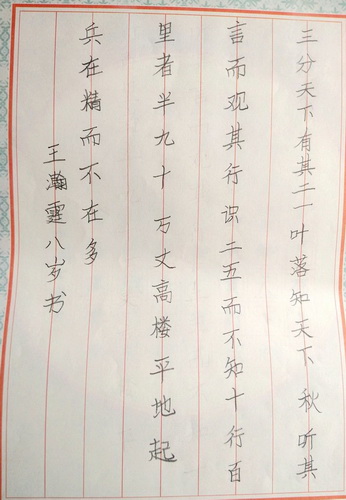 三分天下有其二一叶落知天下秋听其
言而观其行识二五而不知十行百
里者半九十万丈高楼平地起
兵在精而不在多
王瀚霆八岁书